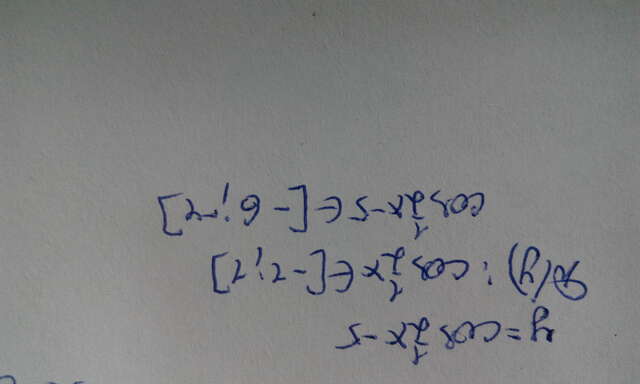 y = cos ½x - 5
D(y): cos ½x ∈ [-1; 1]
cos ½x - 5 ∈ [-6; -4]